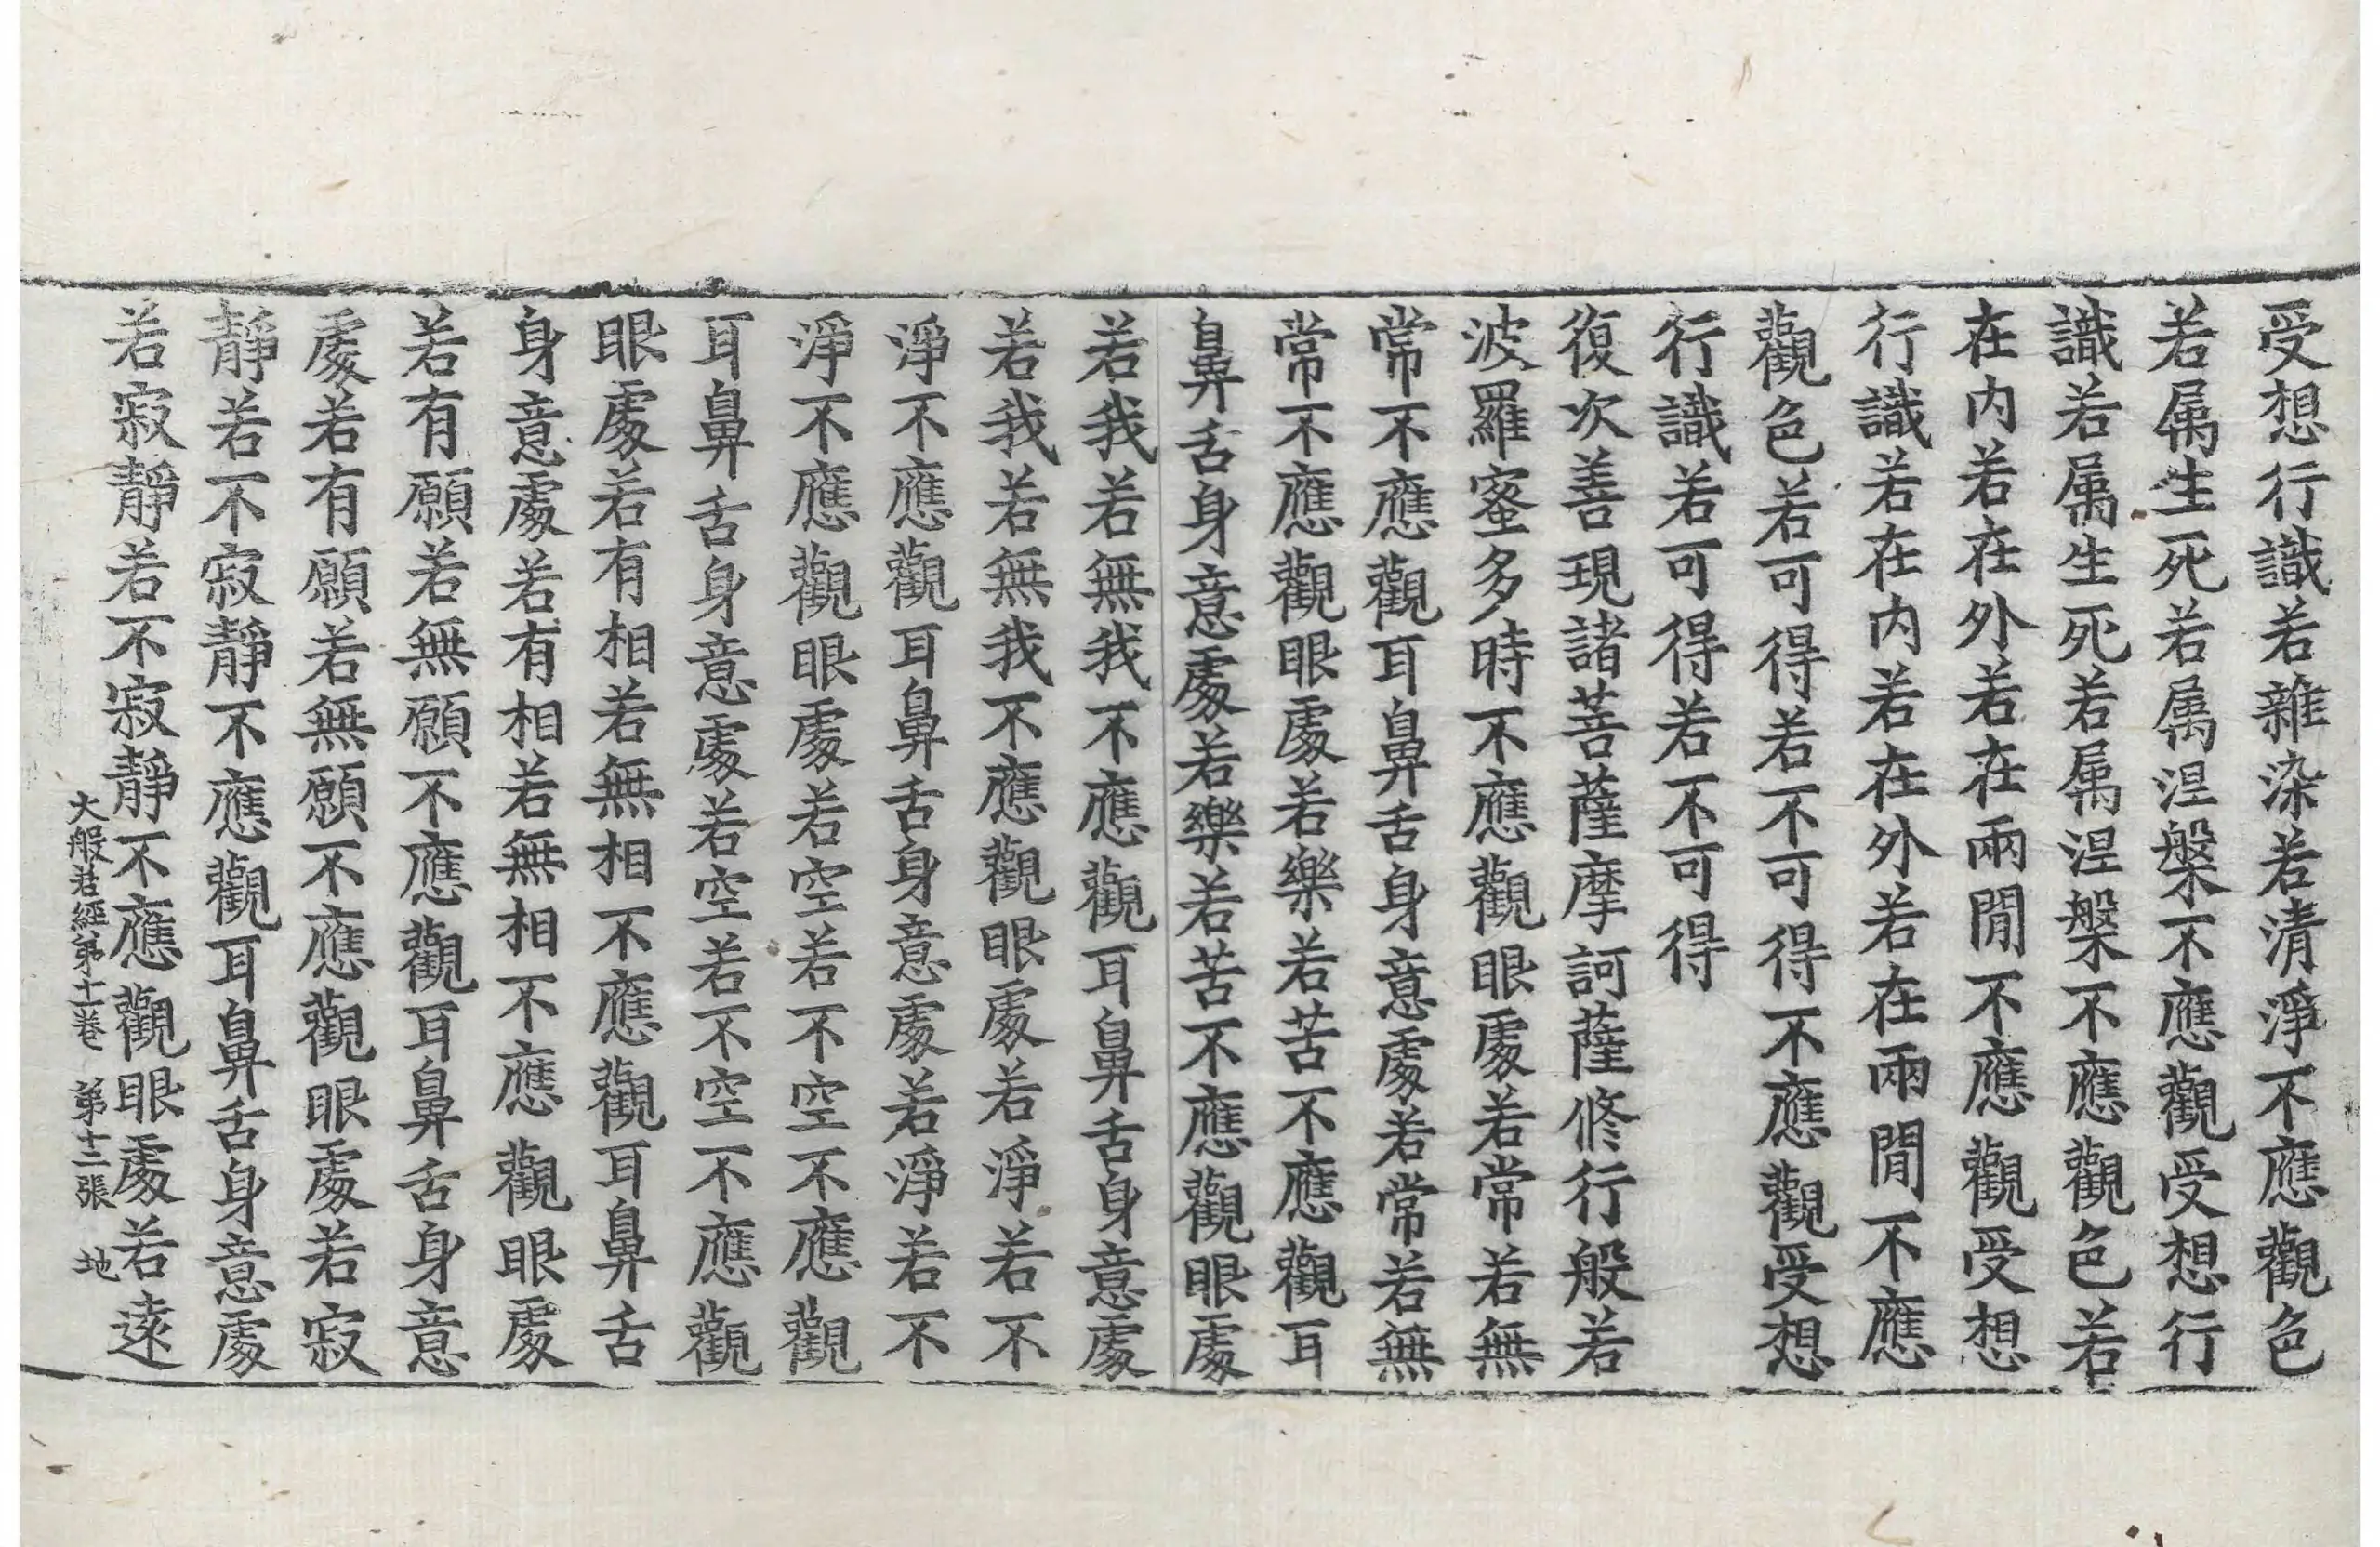 受想行識若雜染若清淨不應觀色
若属生死若属涅槃不應觀受想行
識若属生死若属涅槃不應觀色若
在内若在外若在兩閒不應觀受想
行識若在内若在外若在兩閒不應
觀色若可得若不可得不應觀受想
行識若可得若不可得
復次善現諸菩薩摩訶薩修行般若
波羅蜜多時不應觀眼處若常若無
常不應觀耳鼻舌身意處若常若無
常不應觀眼處若樂若苦不應觀耳
鼻舌身意處若樂若苦不應觀眼處
若我若無我不應觀耳鼻舌身意處
若我若無我不應觀眼處若淨若不
淨不應觀耳鼻舌身意處若淨若不
淨不應觀眼處若空若不空不應觀
耳鼻舌身意處若空若不空不應觀
眼處若有相若無相不應觀耳鼻舌
身意處若有相若無相不應觀眼處
若有願若無願不應觀耳鼻舌身意
處若有願若無願不應觀眼處若寂
靜若不寂靜不應觀耳鼻舌身意處
若寂靜若不寂靜不應觀眼處若遠
大般若經第十二卷 第十二張 地